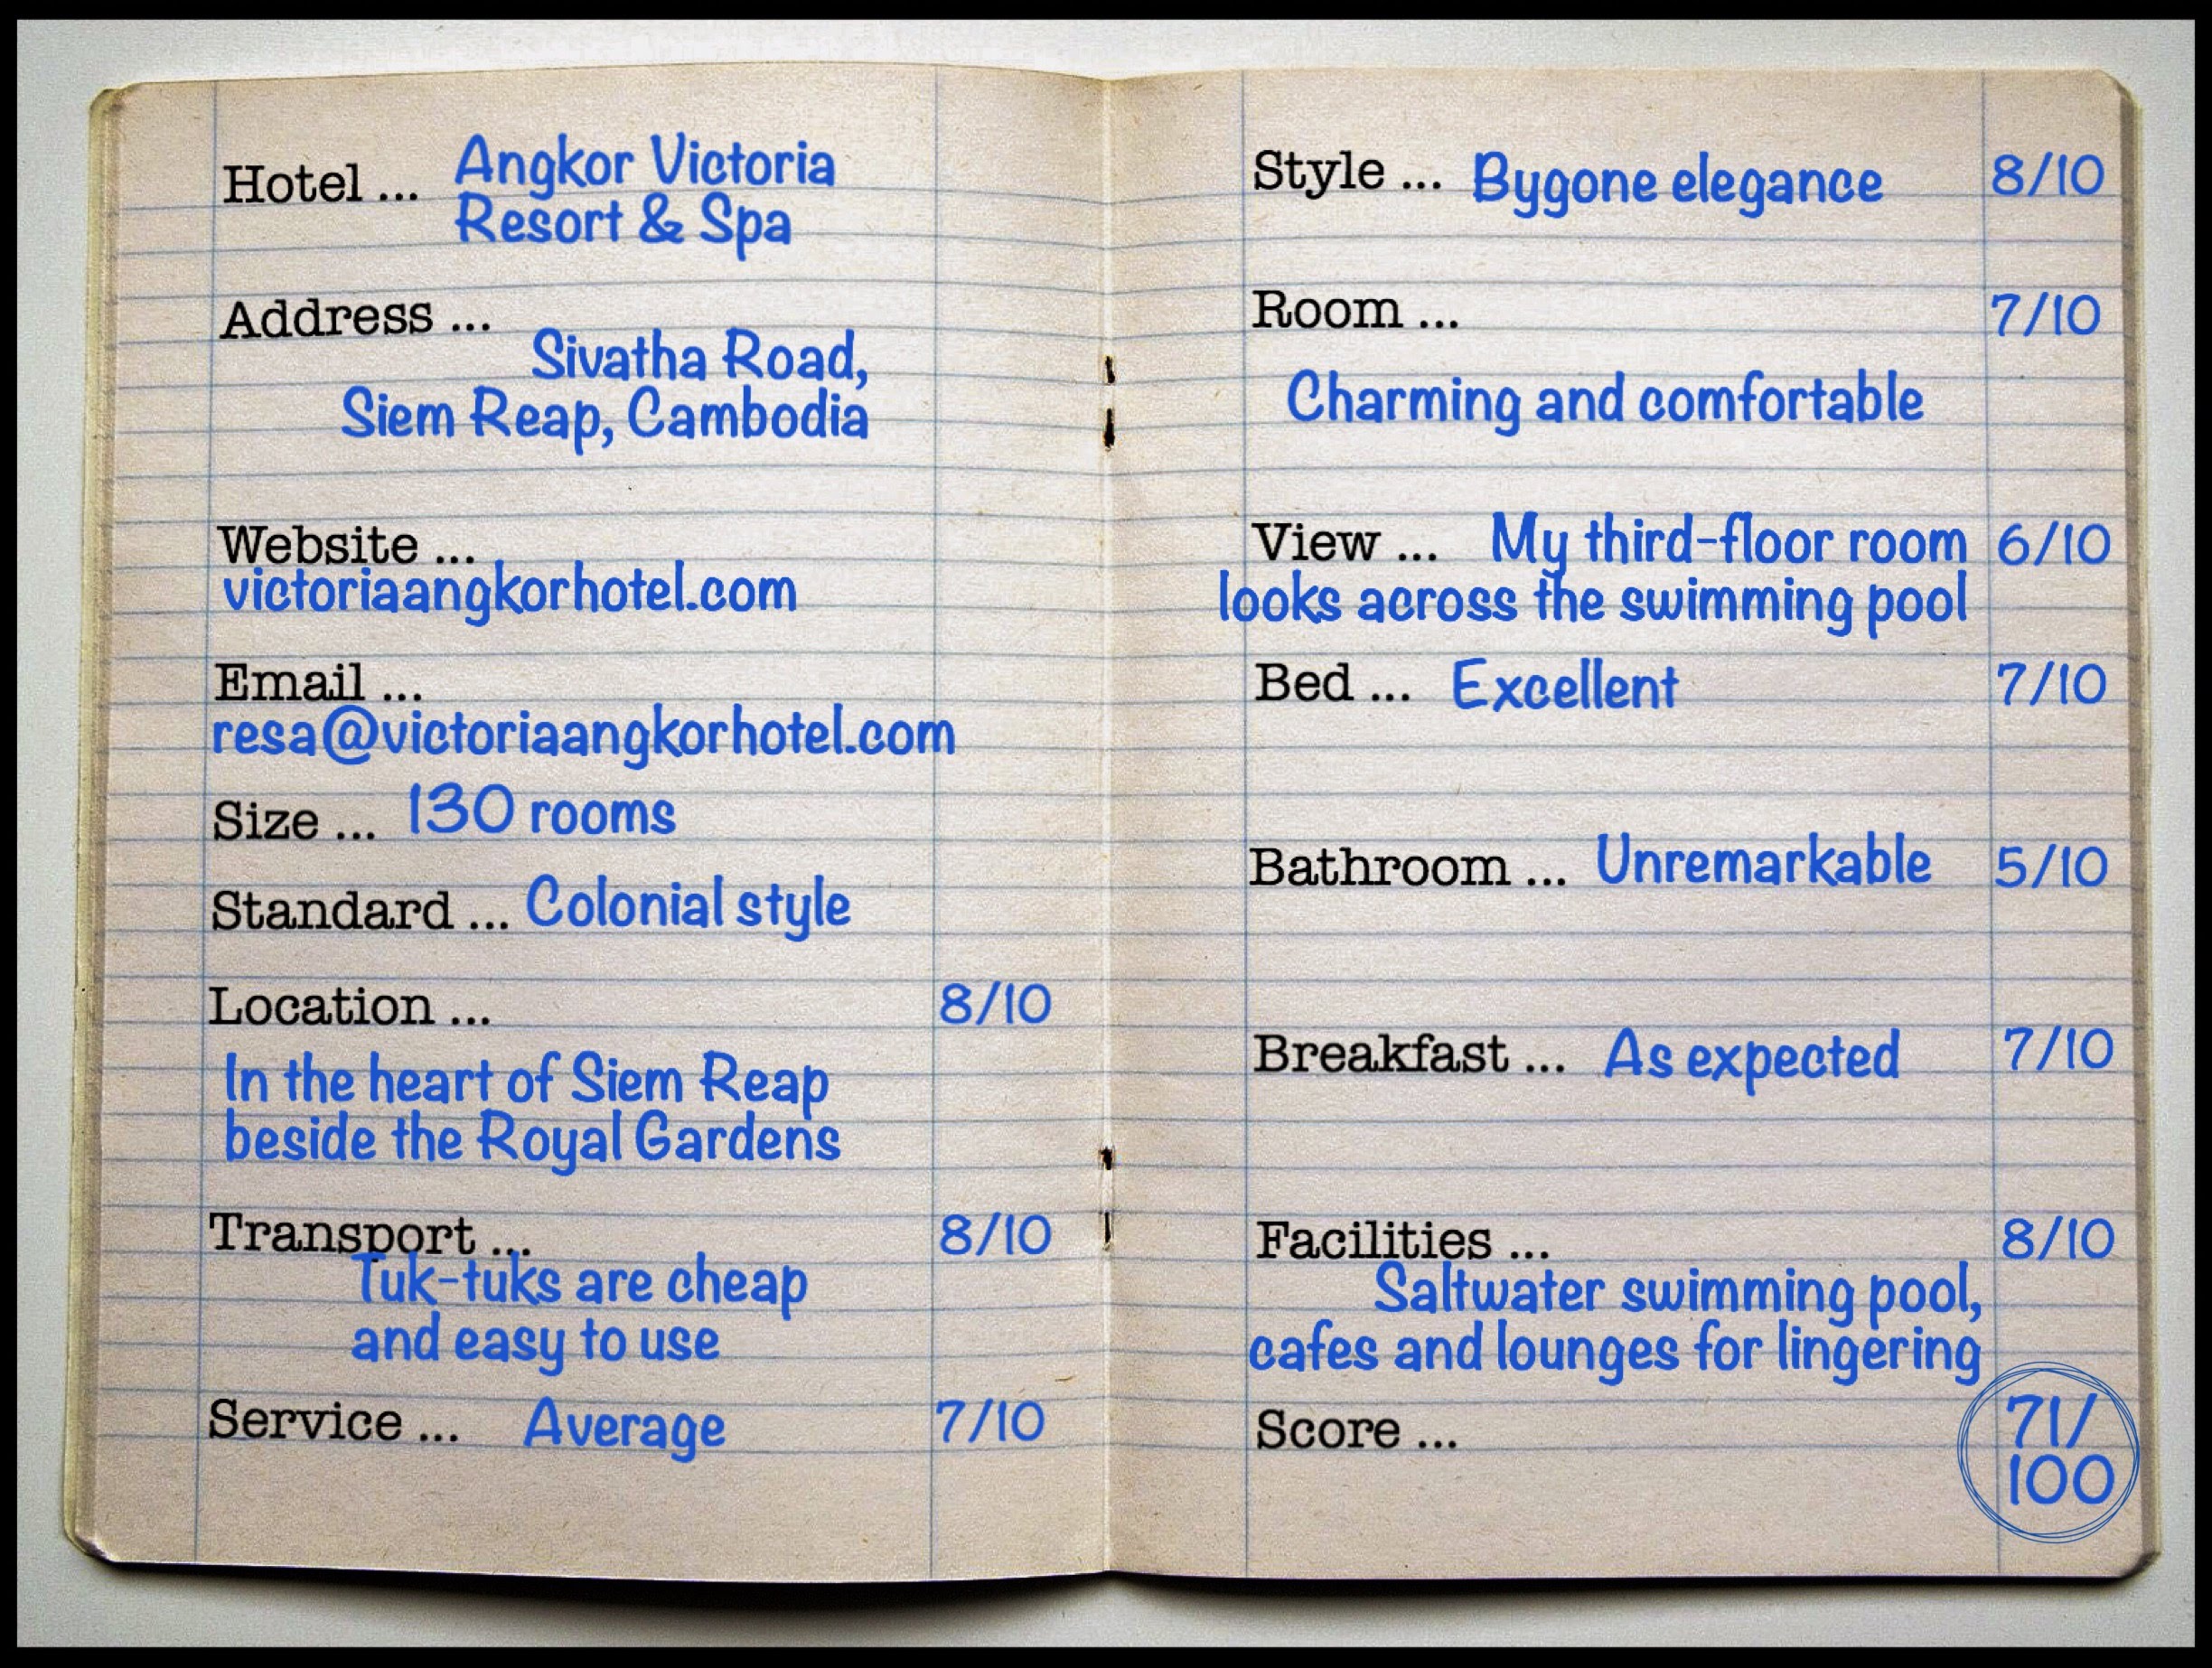 Hotel ... Angkor Victoria
Resort & Spa
Address ...
Sivatha Road,
Siem Reap, Cambodia
Website ...
victoriaangkorhotel.com
Email ...
resa@victoriaangkorhotel.com
Size ... 130 rooms
Standard ... Colonial style
Location ... 8/10
In the heart of Siem Reap
beside the Royal Gardens
Transport ... 8/10
Tuk-tuks are cheap
and easy to use
Service ... Average 7/10
Style ... Bygone elegance 8/10
Room ... 7/10
Charming and comfortable
View ... My third-floor room 6/10
looks across the swimming pool
Bed ... Excellent 7/10
Bathroom ... Unremarkable 5/10
Breakfast ... As expected 7/10
Facilities ... 8/10
Saltwater swimming pool,
cafes and lounges for lingering
Score ... 71/
100